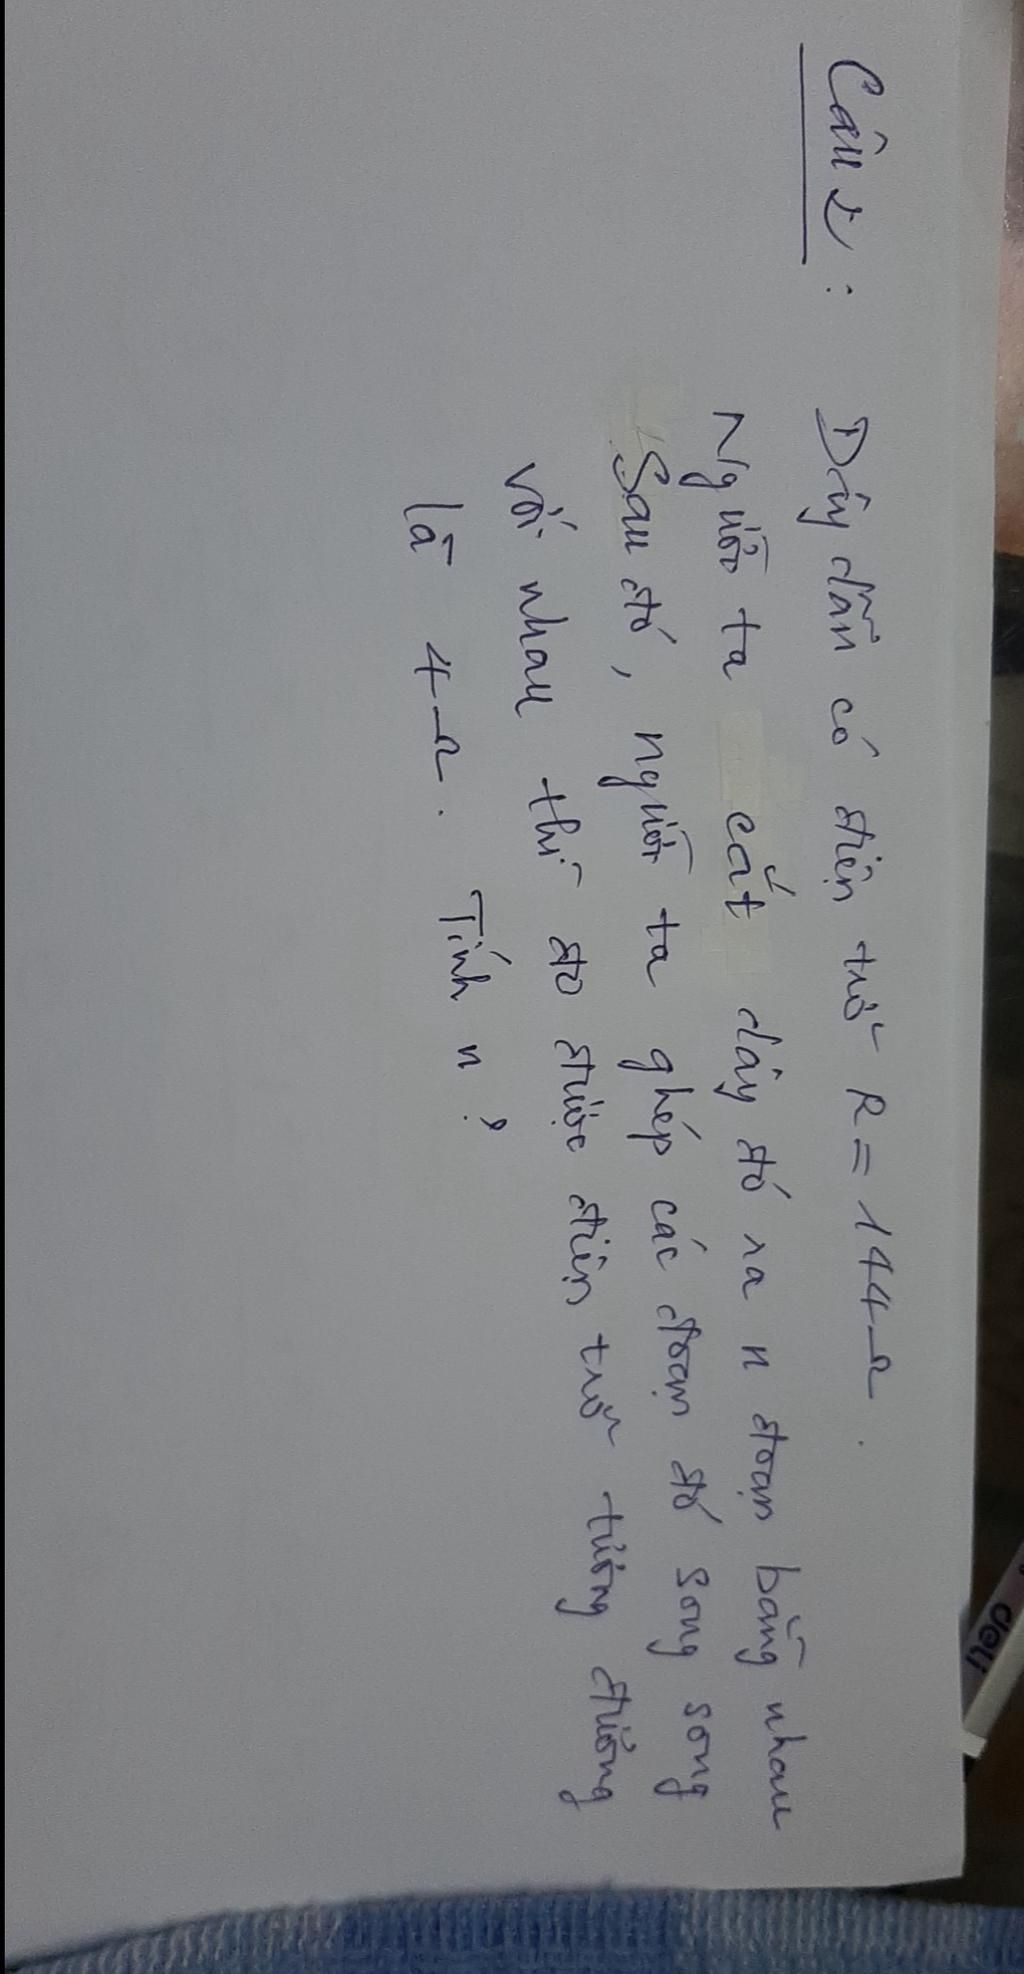 Câu 2 : Dây dẫn có điện trở R = 144 Ω .
Người ta cắt dây đó ra n đoạn bằng nhau
Sau đó, người ta ghép các đoạn đó song song
với nhau thì đo được điện trở tương đương
là 4 Ω . Tính n ?
deli